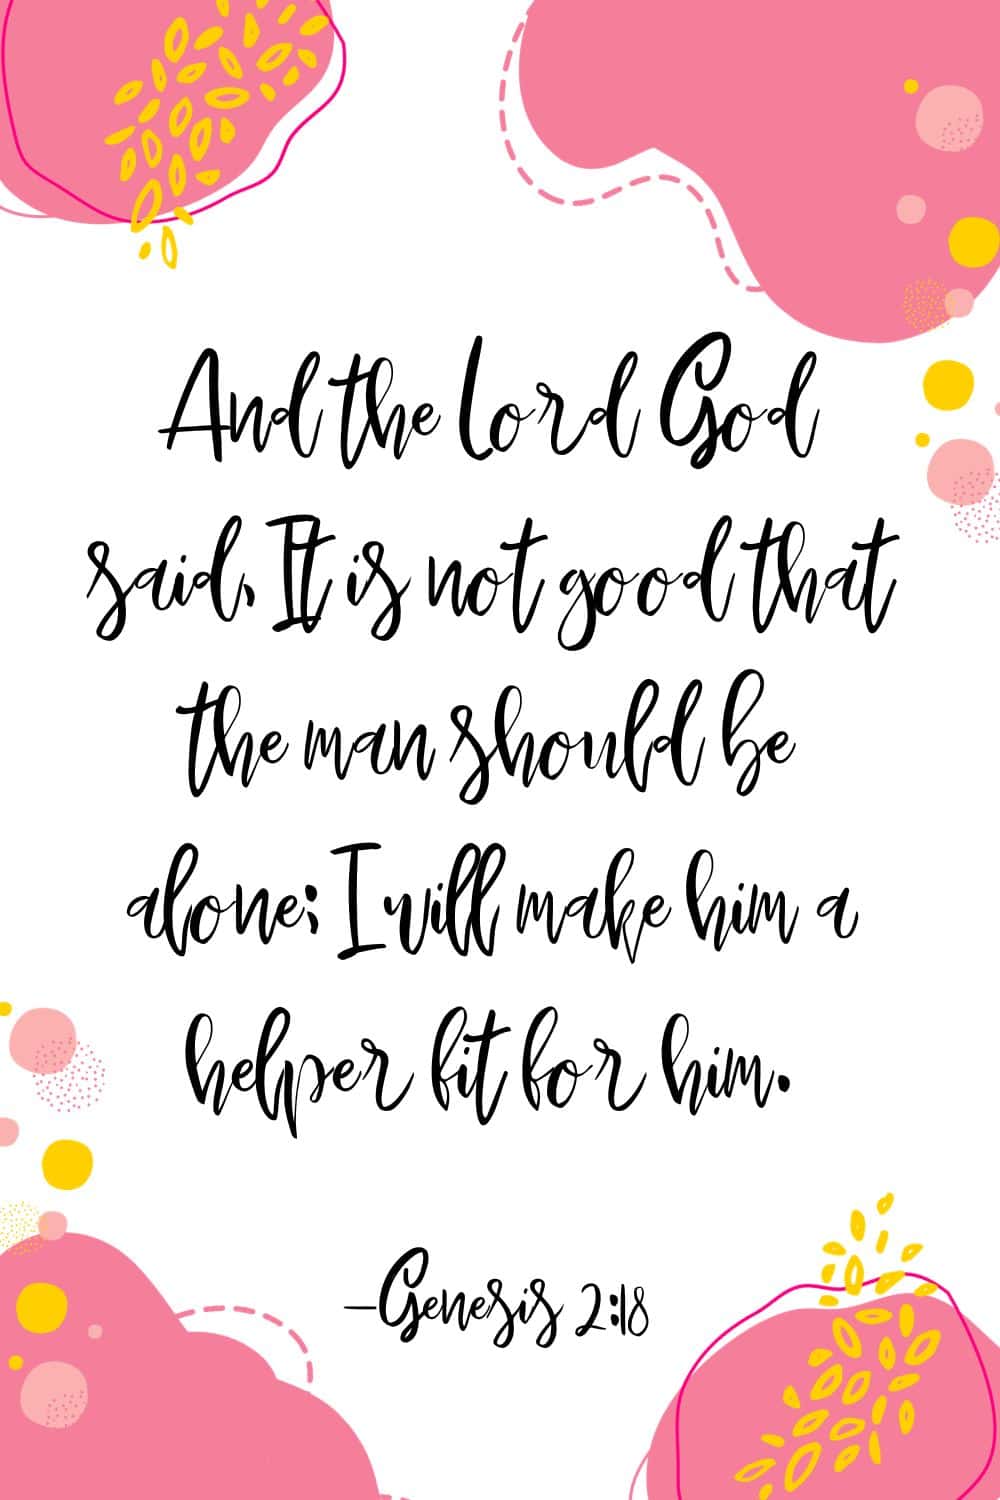 And the Lord God
said, It is not good that
the man should be
alone; I will make him a
helper fit for him.
–Genesis 2:18